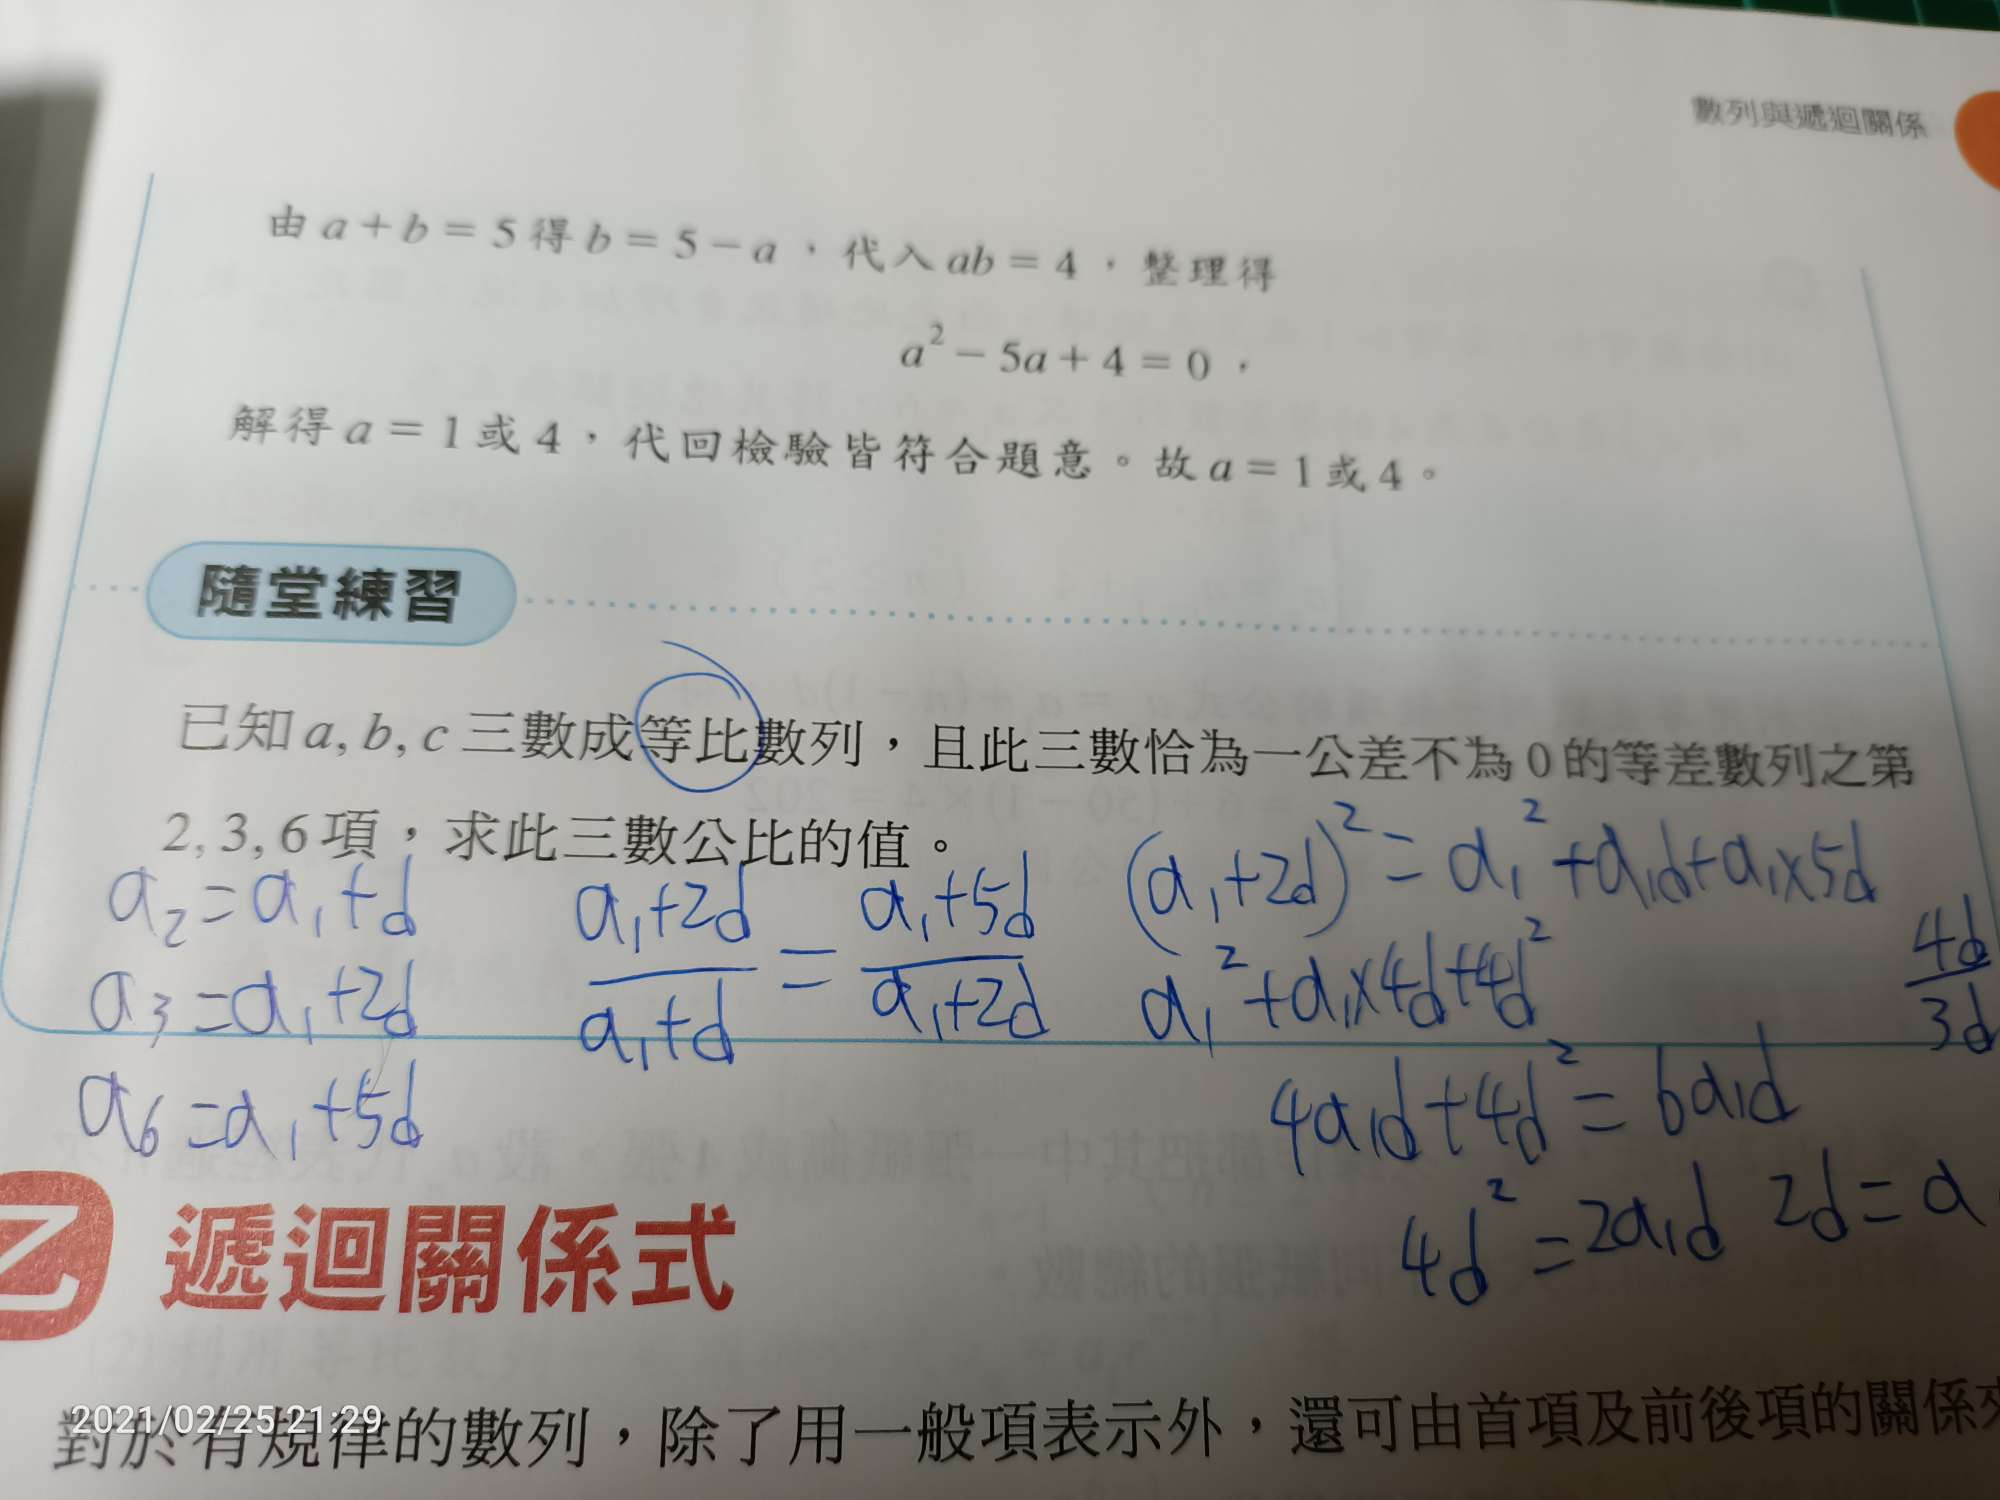 數列與遞迴關係
由 a + b = 5 得 b = 5 - a ，代入 ab = 4 ，整理得
a² - 5a + 4 = 0 ，
解得 a = 1 或 4 ，代回檢驗皆符合題意。故 a = 1 或 4 。
隨堂練習
已知 a, b, c 三數成等比數列，且此三數恰為一公差不為 0 的等差數列之第
2, 3, 6 項，求此三數公比的值。
a₂ = a₁ + d
a₃ = a₁ + 2d
a₆ = a₁ + 5d
(a₁+2d)/(a₁+d) = (a₁+5d)/(a₁+2d)
(a₁+2d)² = a₁² + a₁d + a₁×5d
a₁² + a₁×4d + 4d²
4a₁d + 4d² = 6a₁d
4d² = 2a₁d 2d = a
4d/3d
乙 遞迴關係式
對於有規律的數列，除了用一般項表示外，還可由首項及前後項的關係來
2021/02/25 21:29